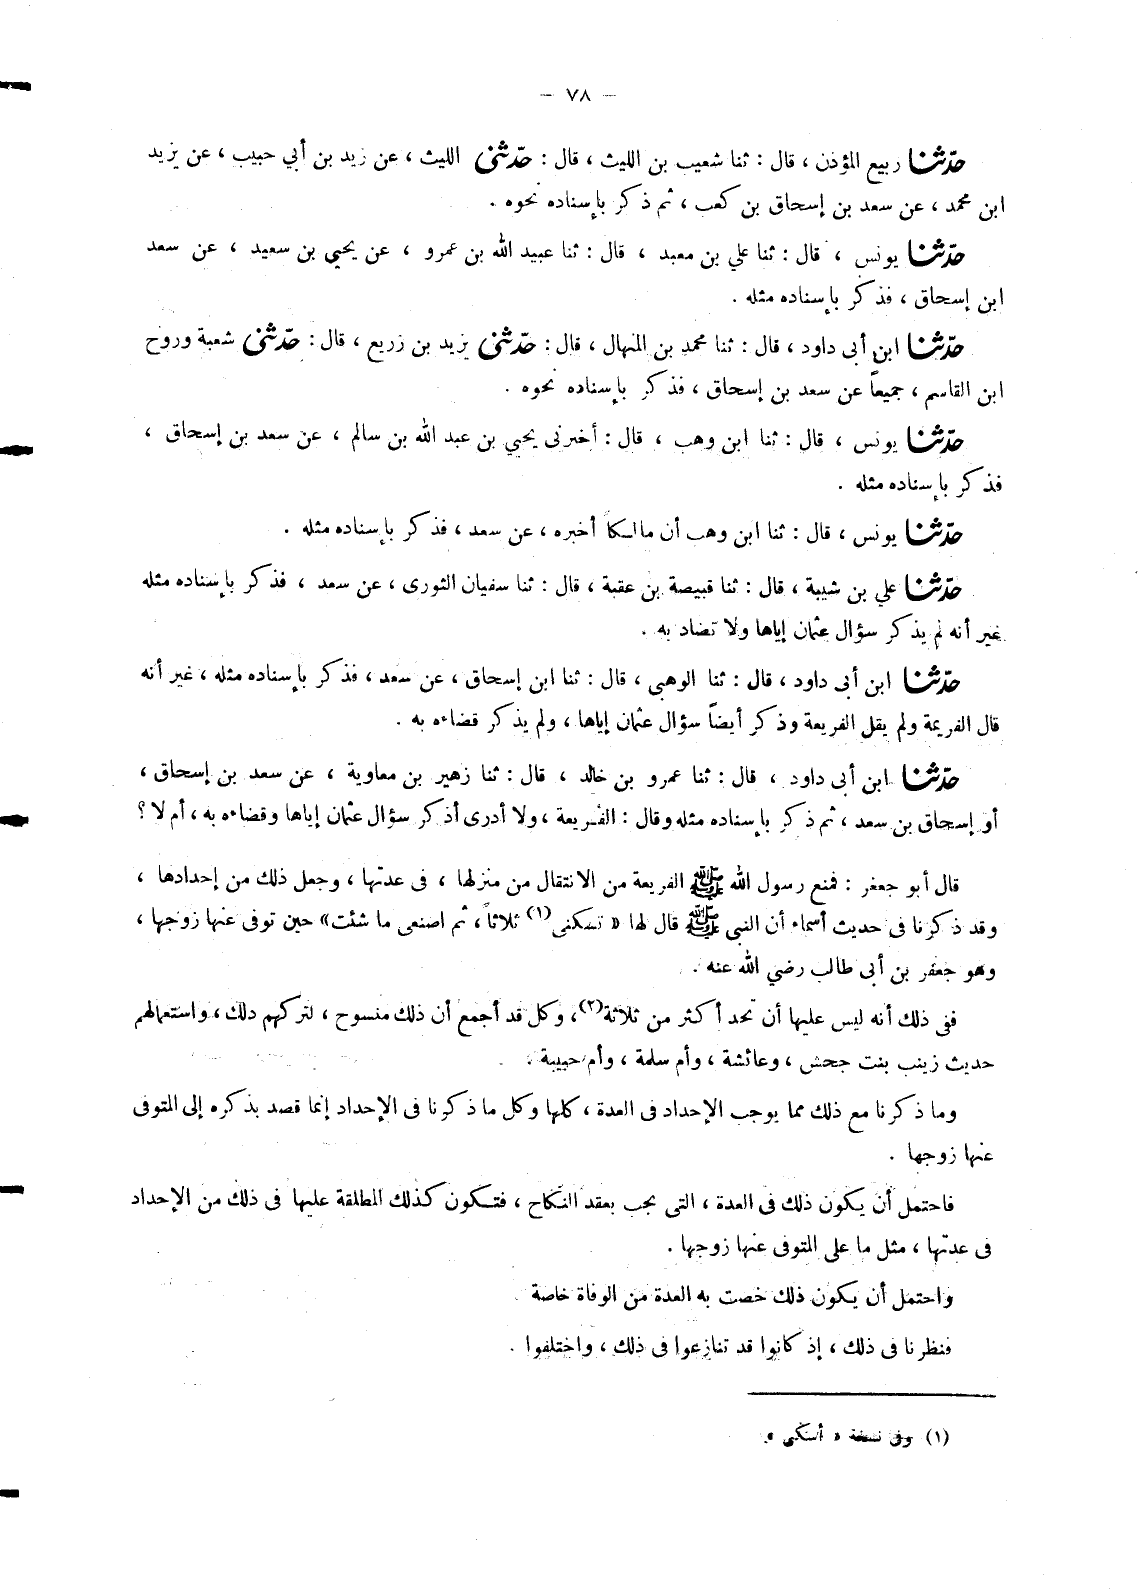 — ٧٨ —
حدّثنا ربيع المؤذن ، قال : ثنا شعيب بن الليث ، قال : حدّثنى الليث ، عن زيد بن أبي حبيب ، عن يزيد
ابن محمد ، عن سعد بن إسحاق بن كعب ، ثم ذكر بإسناده نحوه .
حدّثنا يونس ، قال : ثنا علي بن معبد ، قال : ثنا عبيد الله بن عمرو ، عن يحيي بن سعيد ، عن سعد
ابن إسحاق ، فذكر بإسناده مثله .
حدّثنا ابن أبى داود ، قال : ثنا محمد بن المنهال ، قال : حدّثنى يزيد بن زريع ، قال : حدّثنى شعبة وروح
ابن القاسم ، جميعاً عن سعد بن إسحاق ، فذكر بإسناده نحوه .
حدّثنا يونس ، قال : ثنا ابن وهب ، قال : أخبرنى يحيي بن عبد الله بن سالم ، عن سعد بن إسحاق ،
فذكر بإسناده مثله .
حدّثنا يونس ، قال : ثنا ابن وهب أن مالكا أخبره ، عن سعد ، فذكر بإسناده مثله .
حدّثنا علي بن شيبة ، قال : ثنا قبيصة بن عقبة ، قال : ثنا سفيان الثورى ، عن سعد ، فذكر بإسناده مثله
غير أنه لم يذكر سؤال عثمان إياها ولا تضاد به .
حدّثنا ابن أبى داود ، قال : ثنا الوهبى ، قال : ثنا ابن إسحاق ، عن سعد ، فذكر بإسناده مثله ، غير أنه
قال الفريمة ولم يقل الفريعة وذكر أيضاً سؤال عثمان إياها ، ولم يذكر قضاءه به .
حدّثنا ابن أبى داود ، قال : ثنا عمرو بن خالد ، قال : ثنا زهير بن معاوية ، عن سعد بن إسحاق ،
أو إسحاق بن سعد ، ثم ذكر بإسناده مثله وقال : الفريعة ، ولا أدرى أذكر سؤال عثمان إياها وقضاءه به ، أم لا ؟
قال أبو جعفر : فمنع رسول الله ﷺ الفريعة من الانتقال من منزلها ، فى عدتها ، وجعل ذلك من إحدادها ،
وقد ذكرنا فى حديث أسماء أن النبى ﷺ قال لها « تسكنى(١) ثلاثاً ، ثم اصنعى ما شئت» حين توفى عنها زوجها ،
وهو جعفر بن أبى طالب رضي الله عنه .
ففى ذلك أنه ليس عليها أن تحد أكثر من ثلاثة(٢)، وكل قد أجمع أن ذلك منسوح ، لتركهم دلك ، واستعمالهم
حديث زينب بنت جحش ، وعائشة ، وأم سلمة ، وأم حبيبة .
وما ذكرنا مع ذلك مما يوجب الإحداد فى العدة ، كلها وكل ما ذكرنا فى الإحداد إنما قصد بذكره إلى المتوفى
عنها زوجها .
فاحتمل أن يكون ذلك فى العدة ، التى تجب بعقد النكاح ، فتكون كذلك المطلقة عليها فى ذلك من الإحداد
فى عدتها ، مثل ما على المتوفى عنها زوجها .
واحتمل أن يكون ذلك خصت به العدة من الوفاة خاصة
فنظرنا فى ذلك ، إذ كانوا قد تنازعوا فى ذلك ، واختلفوا .
(١) وفى نسخة « أسكى »